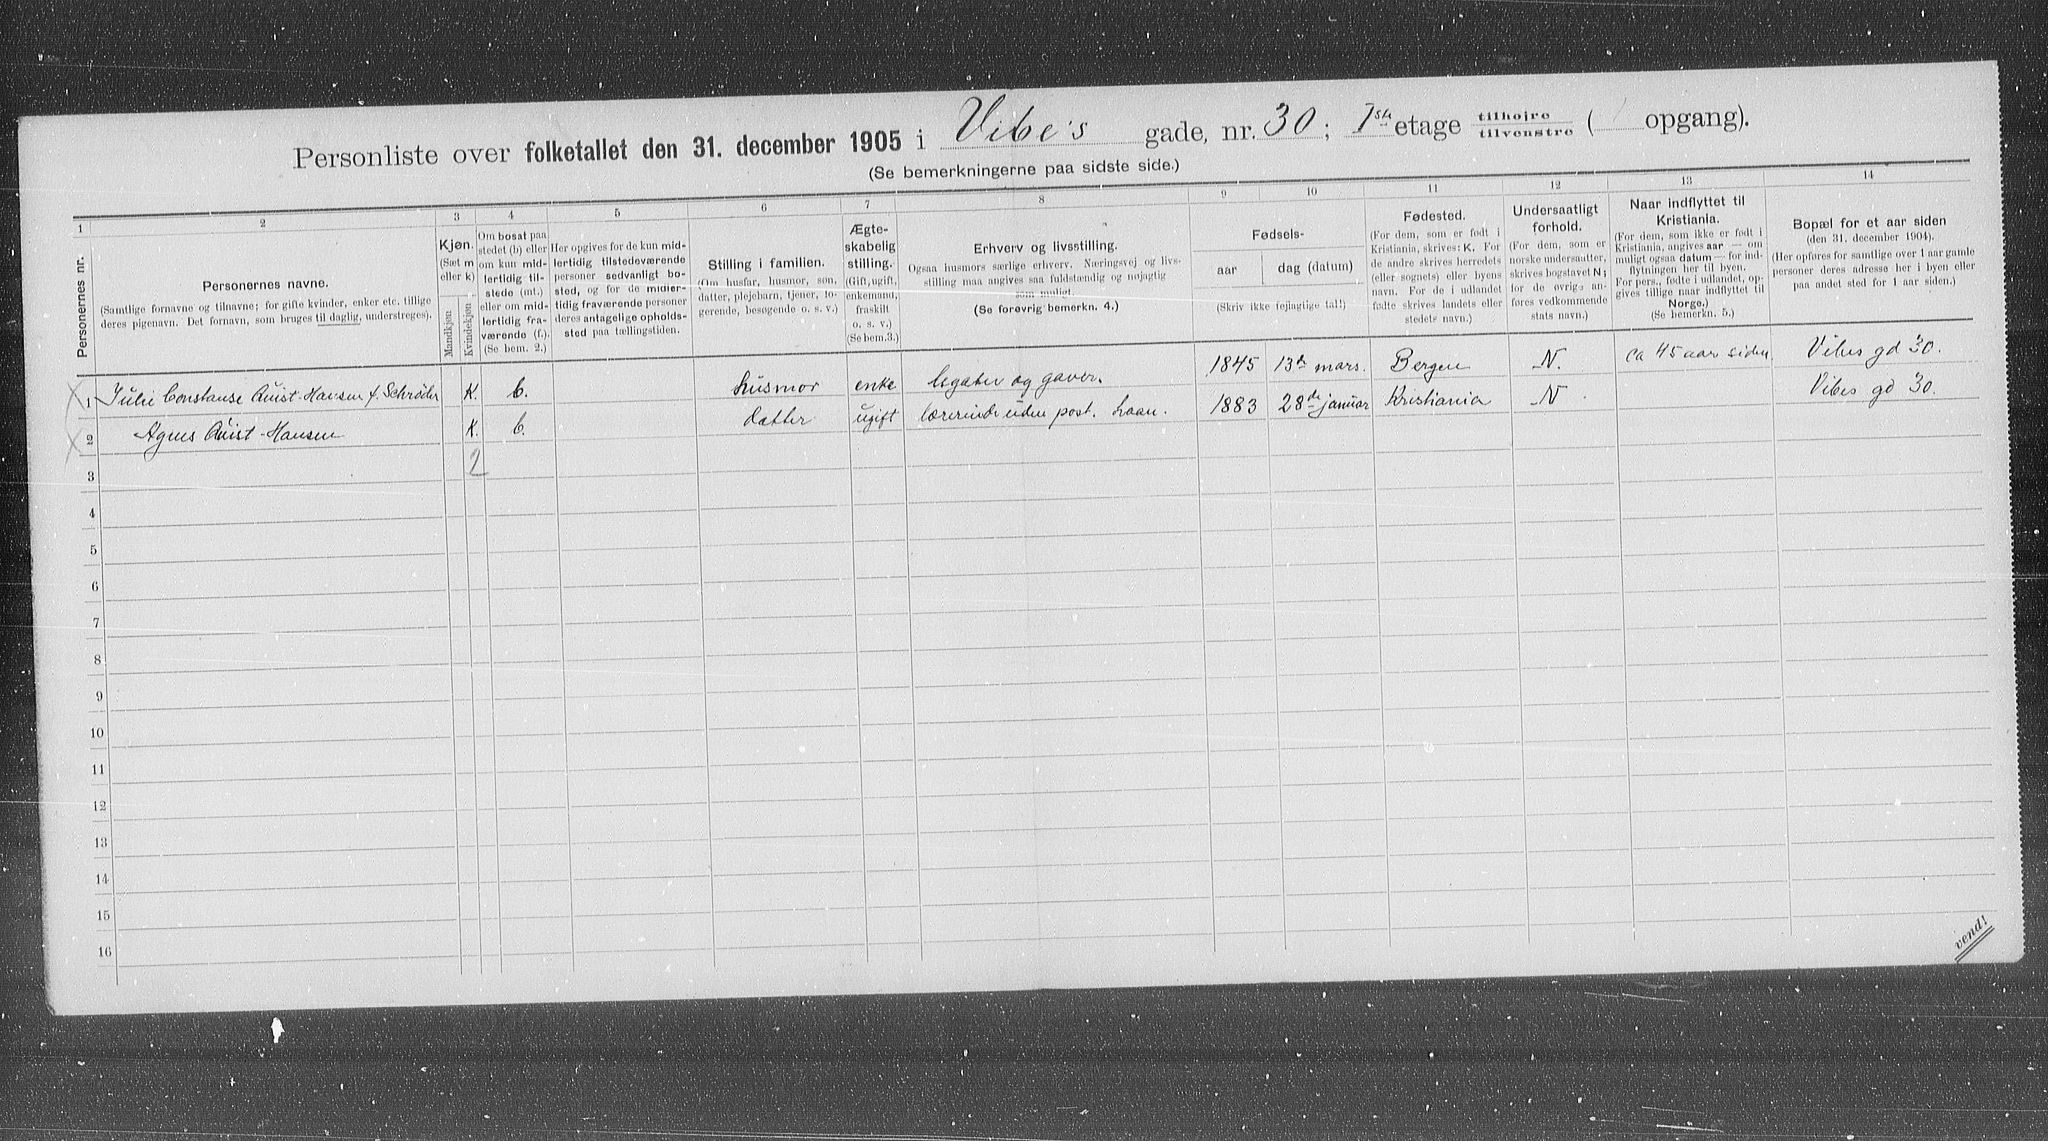 Personliste over folketallet den 31. december 1905 i Vibe's gade, nr. 30; 1ste etage tilhøjre tilvenstre ( / opgang).
(Se bemerkningerne paa sidste side.)
1 2 3 4 5 6 7 8 9 10 11 12 13 14
Personernes nr.
Personernes navne.
(Samtlige fornavne og tilnavne; for gifte kvinder, enker etc. tillige
deres pigenavn. Det fornavn, som bruges til daglig, understreges).
Kjøn.
(Sæt m
eller k)
Mandkjøn
Kvindekjøn
Om bosat paa
stedet (b) eller
om kun mid-
lertidig til-
stede (mt.)
eller om mid-
lertidig fra-
værende (f.)
(Se bem. 2.)
Her opgives for de kun mid-
lertidig tilstedeværende
personer sedvanligt bo-
sted, og for de midler-
tidig fraværende personer
deres antagelige opholds-
sted paa tællingstiden.
Stilling i familien.
(Om husfar, husmor, søn,
datter, plejebarn, tjener, lo-
gerende, besøgende o. s. v.)
Ægte-
skabelig
stilling.
(Gift, ugift,
enkemand,
fraskilt
o. s. v.)
(Se bem.3.)
Erhverv og livsstilling.
Ogsaa husmors særlige erhverv. Næringsvej og livs-
stilling maa angives saa fuldstændig og nøjagtig
som muligt.
(Se forøvrig bemerkn. 4.)
Fødsels-
aar
dag (datum)
(Skriv ikke fejagtige tal!)
Fødested.
(For dem, som er født i
Kristiania, skrives: K. For
de andre skrives herredets
(eller sognets) eller byens
navn. For de i udlandet
fødte skrives landets eller
stedets navn.)
Undersaatligt
forhold.
(For dem, som er
norske undersaatter,
skrives bogstavet N;
for de øvrige an-
føres vedkommende
stats navn.)
Naar indflyttet til
Kristiania.
(For dem, som ikke er født i
Kristiania, angives aar — om
muligt ogsaa datum — for ind-
flytningen her til byen.
For pers., fødte i udlandet, op-
gives tillige naar indflyttet til
Norge.)
(Se bemerkn. 5.)
Bopæl for et aar siden
(den 31. december 1904).
(Her opføres for samtlige over 1 aar gamle
personer deres adresse her i byen eller
paa andet sted for 1 aar siden.)
1 Julie Constanse Quist-Hansen f. Schrøder K. b. husmor enke legater og gaver. 1845 13de mars. Bergen N. ca 45 aar siden Vibes gd 30.
2 Agnes Quist-Hansen K. b. datter ugift lærerinde uden post. 1883 28de januar Kristiania N. Vibes gd 30.
3 2
4
5
6
7
8
9
10
11
12
13
14
15
16
vend!